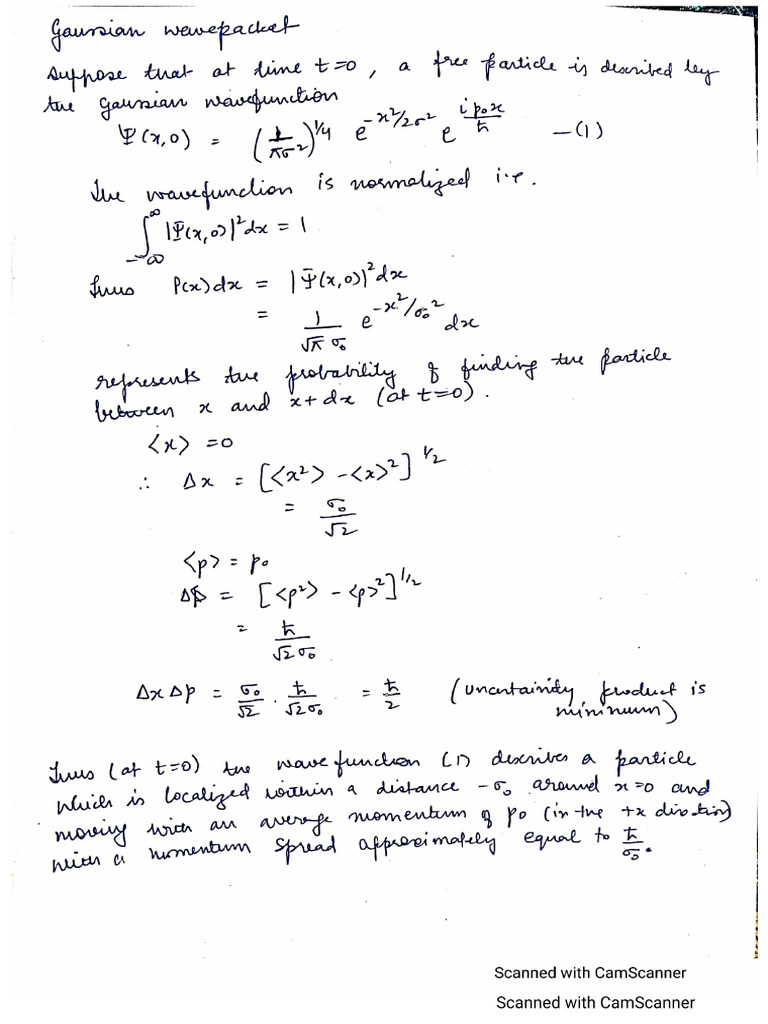 Gaussian wavepacket
Suppose that at time t=0, a free particle is described by
the Gaussian wavefunction
Ψ(x,0) = (1/πσ²)^1/4 e^-x²/2σ² e^ip₀x/ħ —(1)
The wavefunction is normalized i.e.
∫_-∞^∞ |Ψ(x,0)|²dx = 1
Thus P(x)dx = |Ψ(x,0)|²dx
= 1/√π σ₀ e^-x²/σ₀² dx
represents the probability of finding the particle
between x and x+dx (at t=0).
⟨x⟩ =0
∴ Δx = [⟨x²⟩ -⟨x⟩²]^1/2
= σ₀/√2
⟨p⟩ = p₀
Δp = [⟨p²⟩ - ⟨p⟩²]^1/2
= ħ/√2σ₀
ΔxΔp = σ₀/√2 . ħ/√2σ₀ = ħ/2 (Uncertainity product is
mininum)
Thus (at t=0) the wave function (1) describes a particle
which is localized within a distance -σ₀ around x=0 and
moving with an average momentum of p₀ (in the +x direction)
with a momentum spread approximately equal to ħ/σ₀.
Scanned with CamScanner
Scanned with CamScanner